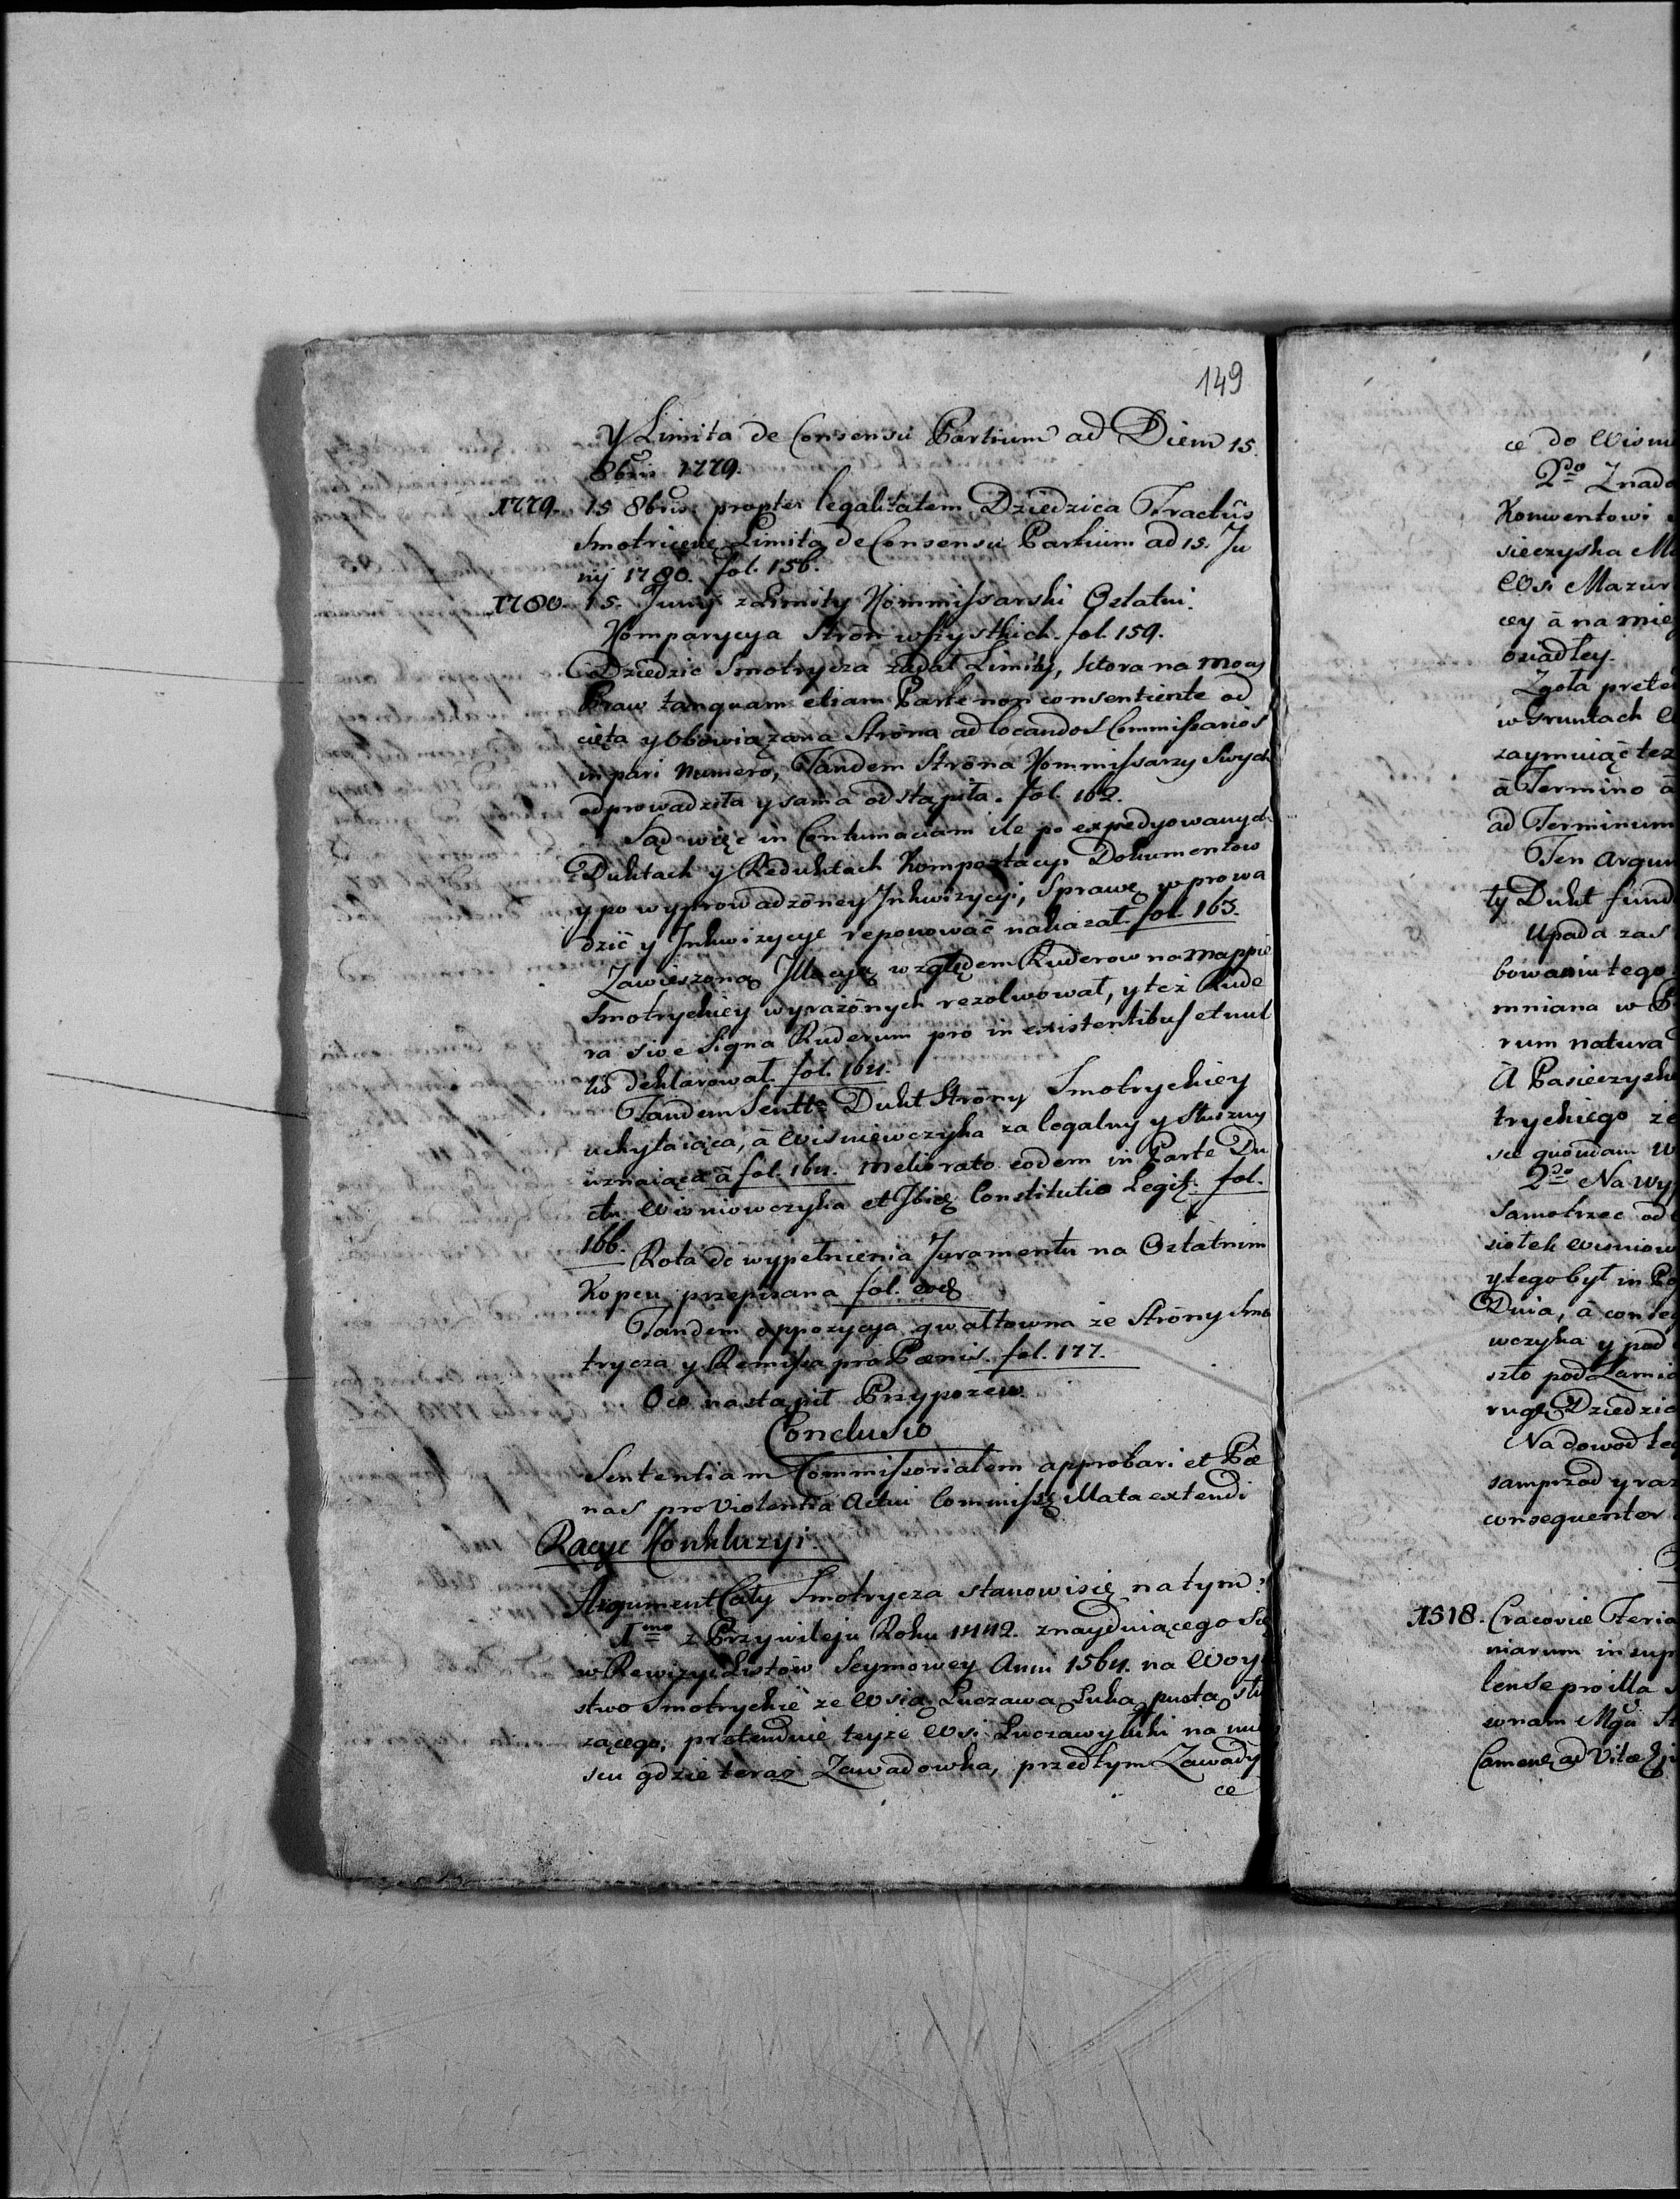 149
Y Limita de Consensu Partium ad Diem 15.
8bris 1779.
1779. 15 8bris propter legalitatem Dziedzica Tractus
Smotricene Limita de Consensu Partium ad 15. Ju
nij 1780. fol. 156.
1780. 15. Junij z Limity Kommissarski Ostatni.
Komparycya Strōn wszystkich. fol. 159.
Dziedzic Smotrycza żądał Limity, ktora na mocy
Praw tanquam etiam Parte non consentiente od
cięta y Obowiązana Strōna ad locandos Commissarios
in pari Numero, Tandem Strōna Kommissarzy Swych
odprowadziła y sama odstąpiła. fol. 162.
Sąd więc in Contumaciam ile po expedyowanych
Duktach y Reduktach Komportacyi Dokumentow
y po wyprowadzōney Inkwizycyi, Sprawę wprowa
dzić y Inkwizycye reponować nakazał. fol. 163.
Zawieszoną Illacyą względem Ruderow na Mappie
Smotryckiey wyrażōnych rezolwował, y też Rude
ra sive Signa Ruderum pro in existentibus et nul
lis deklarował. fol. 164.
Tandem Sentta Dukt Strōny Smotryckiey
uchylaiąca, à Wisniewczyka za legalny y Słuszny
uznaiąca à fol. 164. Meliorato eodem in Parte Du
ctu Wisniowczyka et Ibid Constitutio Legit. fol.
166. Rota do wypełnienia Juramentu na Ostatnim
Kopcu przepisana fol. eod
Tandem oppozycya gwałtowna ze Strōny Smo
trycza y Remissa pro Pœnis. fol. 177.
Oco nastąpił Przypozew.
Conclusio
Sententiam Commissorialem approbari et Pœ
nas pro Violentia Actui Commiss. illata extendi
Racye Konkluzyi.
Argument Cały Smotrycza stanowi się na tym:
1mo z Przywileju Roku 1442. znayduiącego Się
w Rewizyi Listōw Seymowey Anni 1564. na Woy
stwo Smotryckie ze Wsią Luczawa Luka pusta słu
zącego, pretenduie teyze Wsi Luczawy Łuki na mie
scu gdzie teraz Zawadowka, przedtym Zawady
ce
ce do Wisni
2do Znado
Konwentowi
sieczyska
Wsi Mazur
cey à na miey
osiadłey.
Zgoła prete
w Gruntach
zaymuiąc tez
à Termino à
ad Terminum
Ten Argum
ty Dukt fund
Upada zas
bowaniu tego
mniana w
rum natura
A Pasieczysk
tryckiego ze
seu quondam
2do Na wy
Samotrzec od
siołek Wisniow
y tego był in
Dnia, à conseq
wczyka y pod
szło pod
Dziedzic
Na dowod te
samprzod y raz
consequenter
1518. Cracoviæ Feria
niarum in sup
lense pro illa